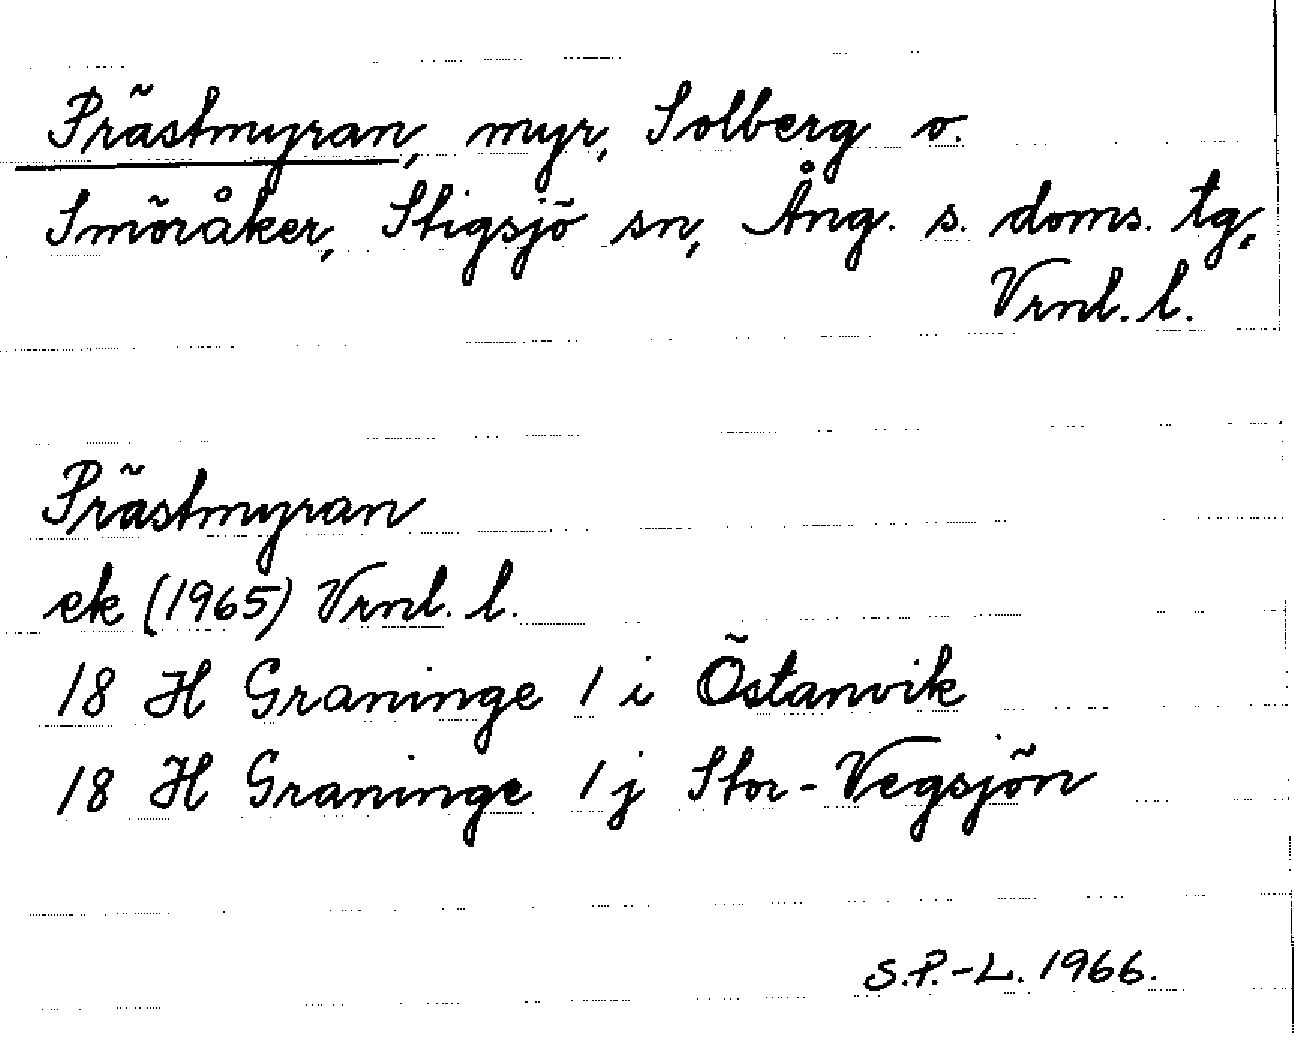 Prästmyran, myr, Solberg o.
Smöråker, Stigsjö sn, Ång. s. doms. tg,
Vrnl. l.
Prästmyran
ek (1965) Vrnl. l.
18 H Graninge 1 i Östanvik
18 H Graninge 1 j Stor-Vegsjön
S.P.-L. 1966.